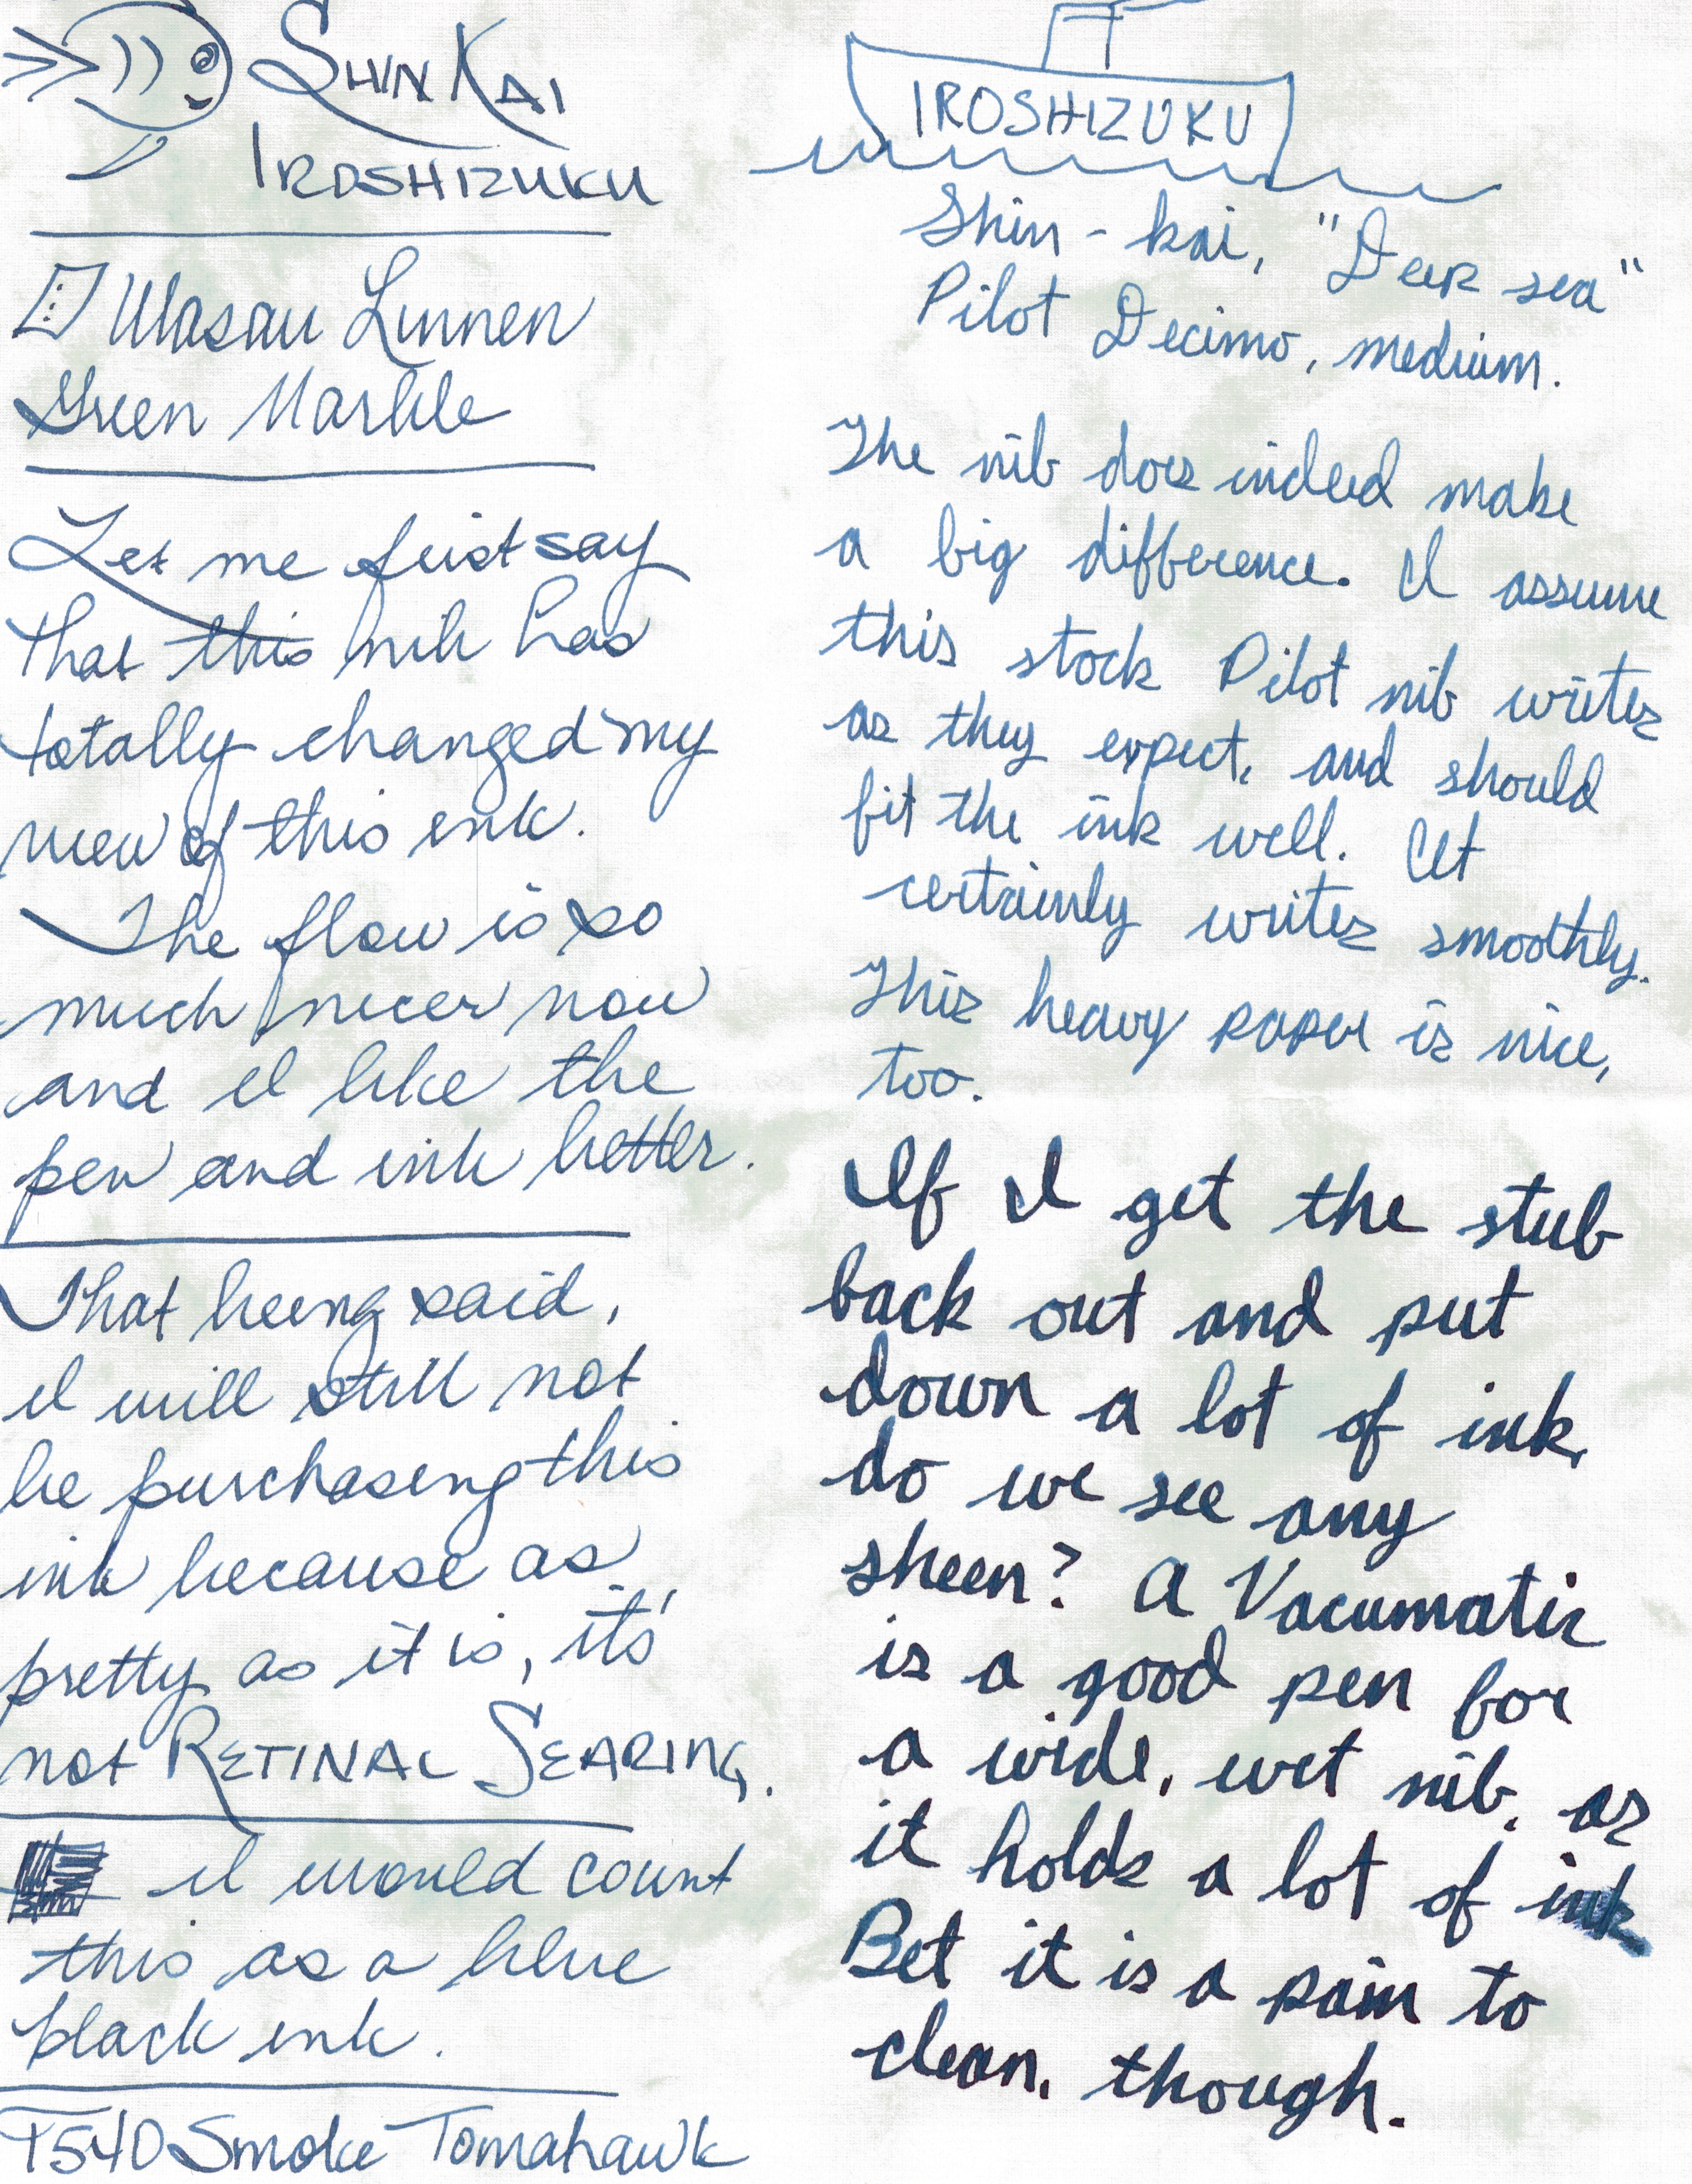 SHIN KAI
IROSHIZUKU
Wasau Linnen
Green Marble
Let me first say
that this nib has
totally changed my
view of this ink.
The flow is so
much nicer now
and I like the
pen and ink better.
That being said,
I will still not
be purchasing this
ink because as
pretty as it is, it's
not RETINAL SEARING.
I would count
this as a blue
black ink.
T540 Smoke Tomahawk
IROSHIZUKU
Shin-kai, "Deep sea"
Pilot Decimo, medium.
The nib does indeed make
a big difference. I assume
this stock Pilot nib writes
as they expect, and should
fit the ink well. It
certainly writes smoothly.
This heavy paper is nice,
too.
If I get the stub
back out and put
down a lot of ink,
do we see any
sheen? A Vacumatic
is a good pen for
a wide, wet nib, as
it holds a lot of ink
Bet it is a pain to
clean, though.